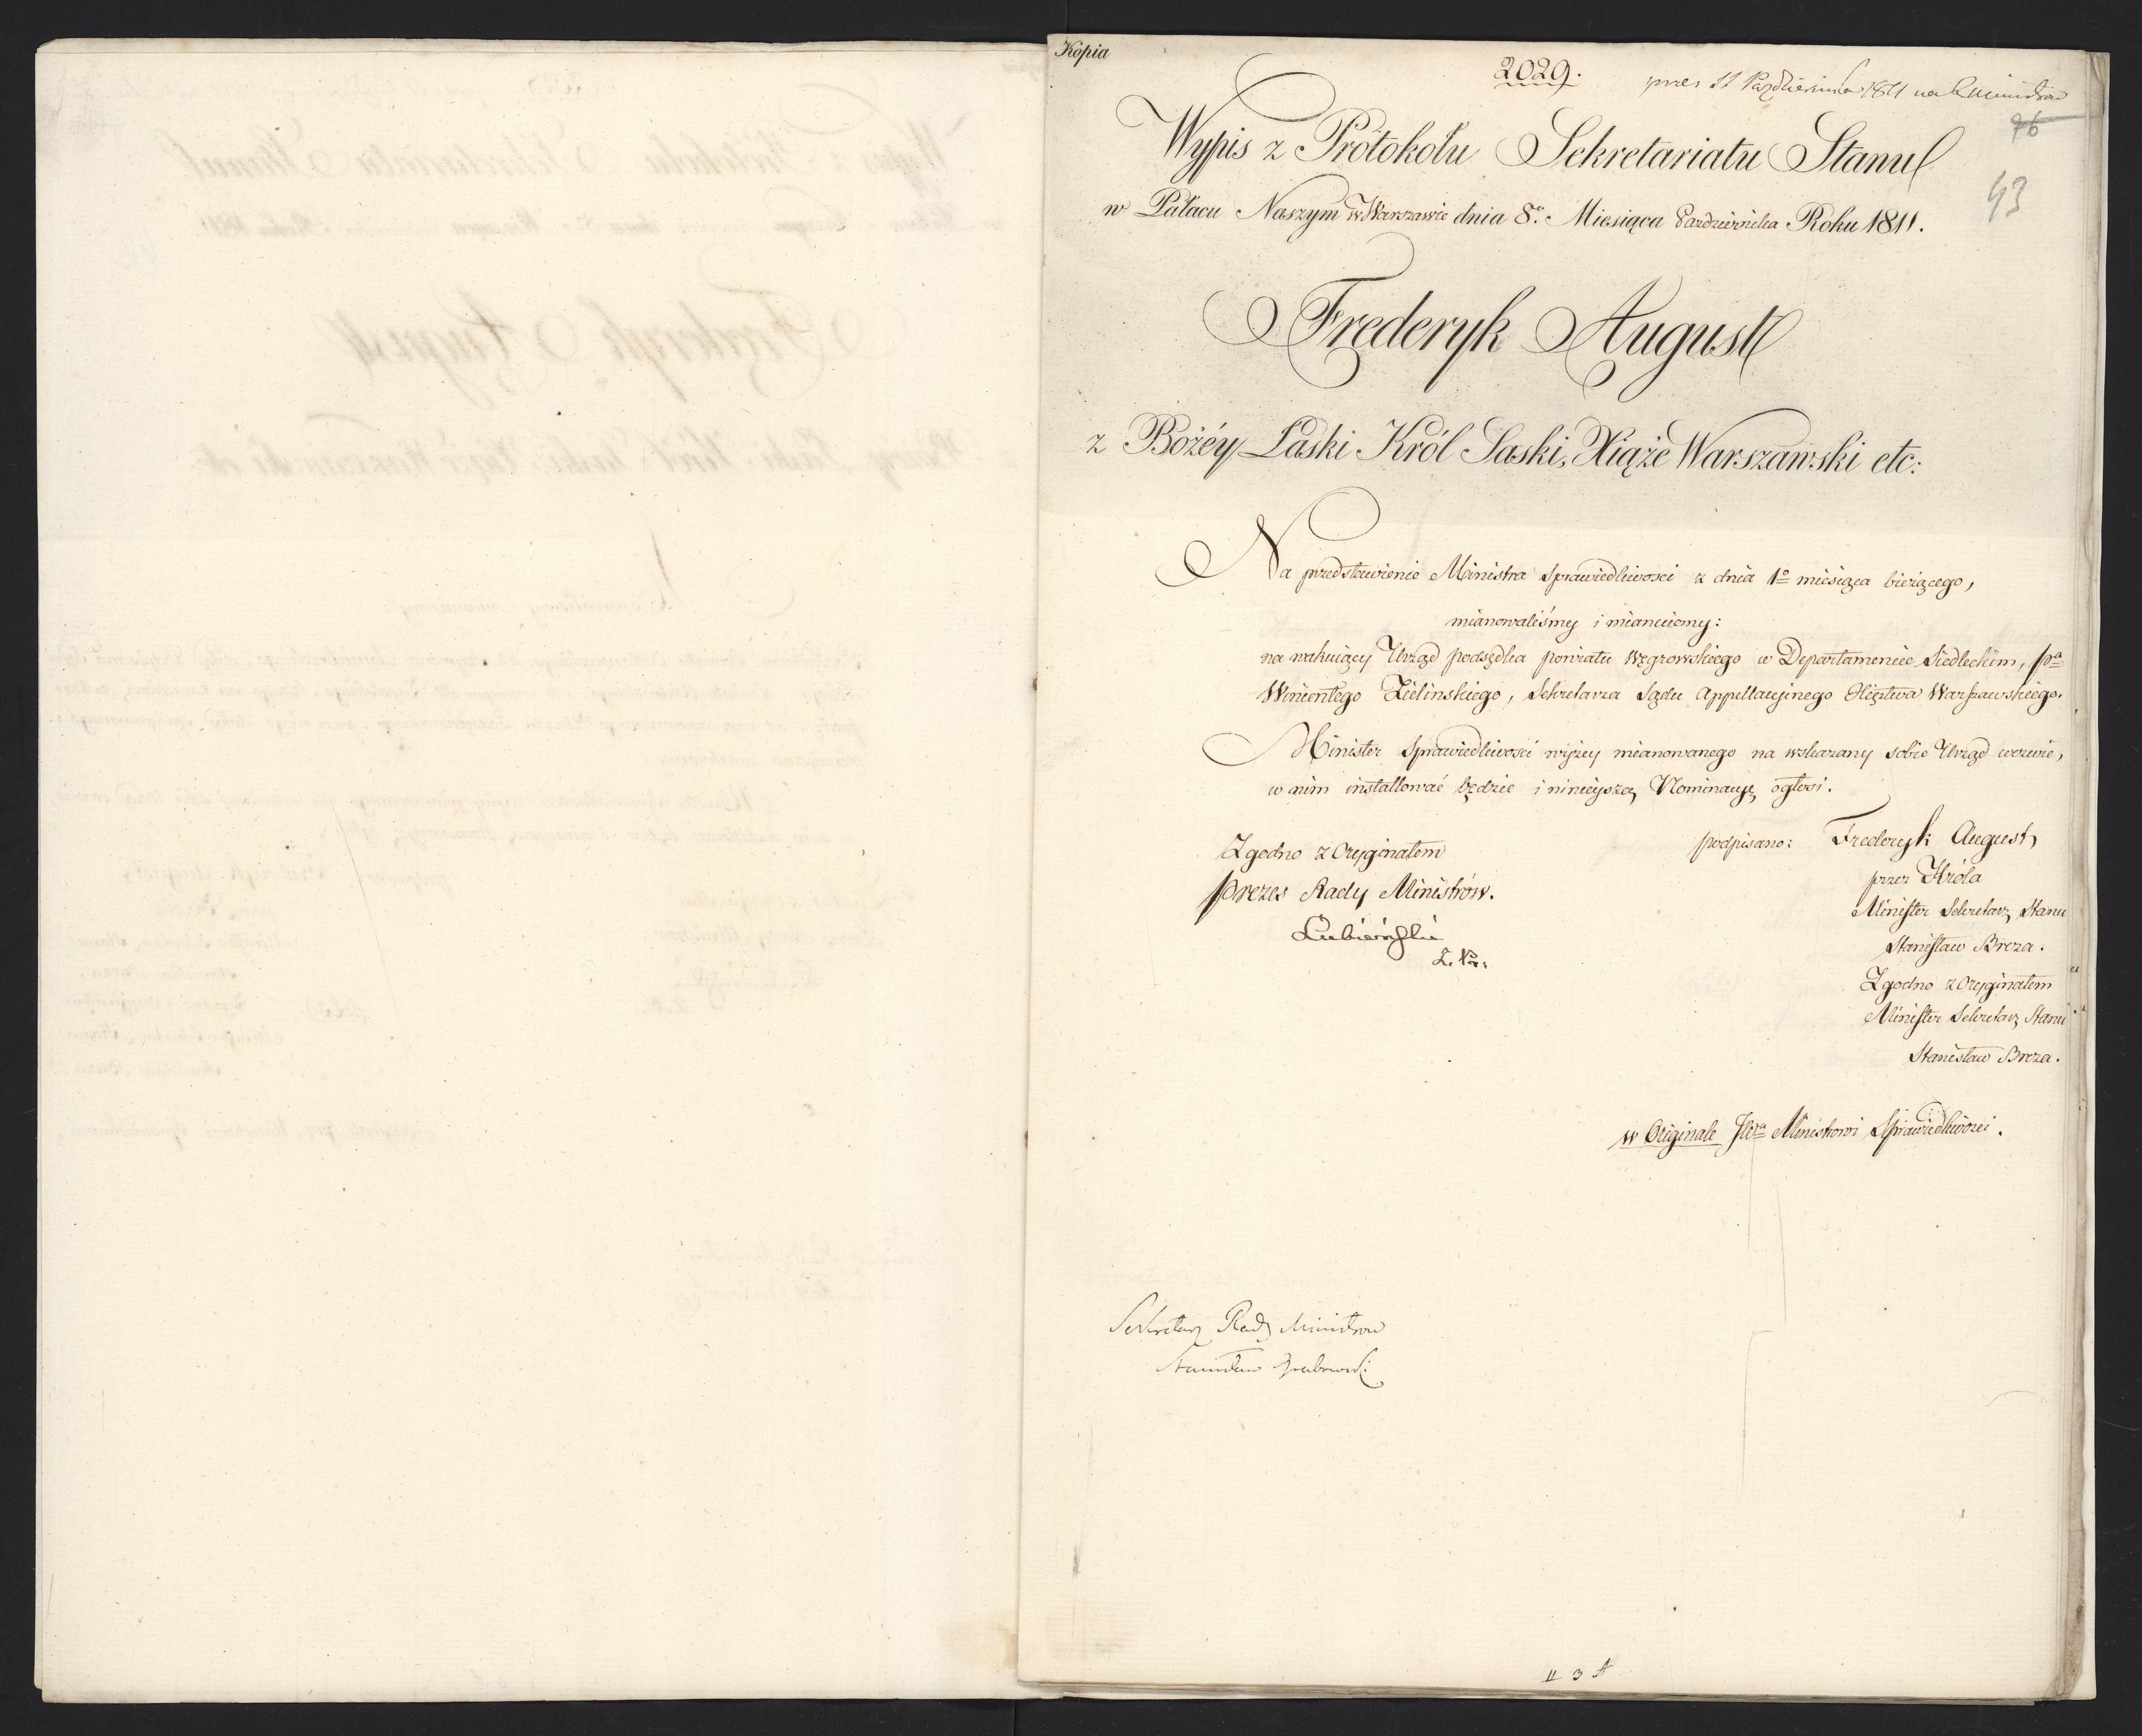 Kopia
2029.
pres 11 Października 1811 na R Ministrów
76
43
Wypis z Protokołu Sekretariatu Stanu
w Pałacu Naszym w Warszawie dnia 8º. Miesiąca Października Roku 1811.
Frederyk August
z Bożéy Łaski Król Saski, Xiąże Warszawski etc:
Na przedstawienie Ministra Sprawiedliwości z dnia 1º miesiąca bieżącego,
mianowaliśmy i mianuiemy:
na wakuiący Urząd podsędka powiatu Węgrowskiego w Departamencie Siedleckim, Pª
Wincentego Zielinskiego, Sekretarza Sądu Appellacyinego Xięstwa Warszawskiego.
Minister Sprawiedliwości wyżey mianowanego na wskazany sobie Urząd wezwie,
w nim installować będzie i ninieyszą Nominacyę ogłosi.
Zgodno z Oryginałem
Prezes Rady Ministrów.
Lubieński
Z. Pr.
podpisano: Frederyk August
przez Króla
Minister Sekretarz Stanu
Stanisław Breza.
Zgodno z Oryginałem
Minister Sekretarz Stanu
Stanisław Breza.
w Originale JWmu Ministrowi Sprawiedliwości.
Sekretarz Rady Ministrow
Stanisław Grabowski
II 3 A